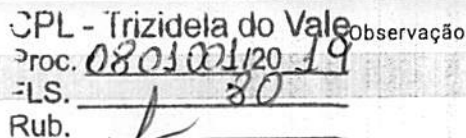 CPL - Trizidela do Vale Observação
Proc. 0801001/2019
FLS. 80
Rub.